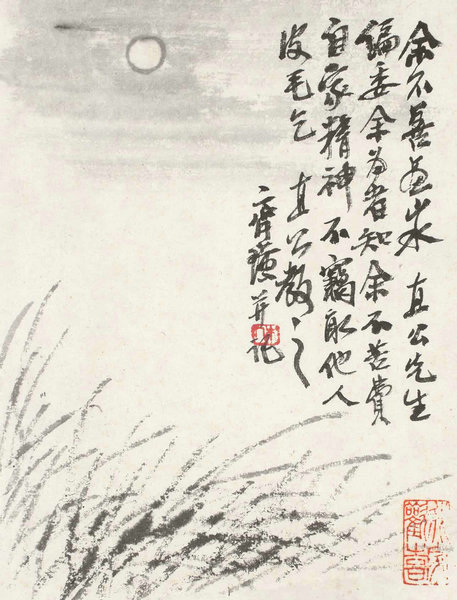 余不善画山水 直公先生
偏委余为者知余不苦費
自家精神不竊取他人
皮毛乞 直公教之
齊璜并記